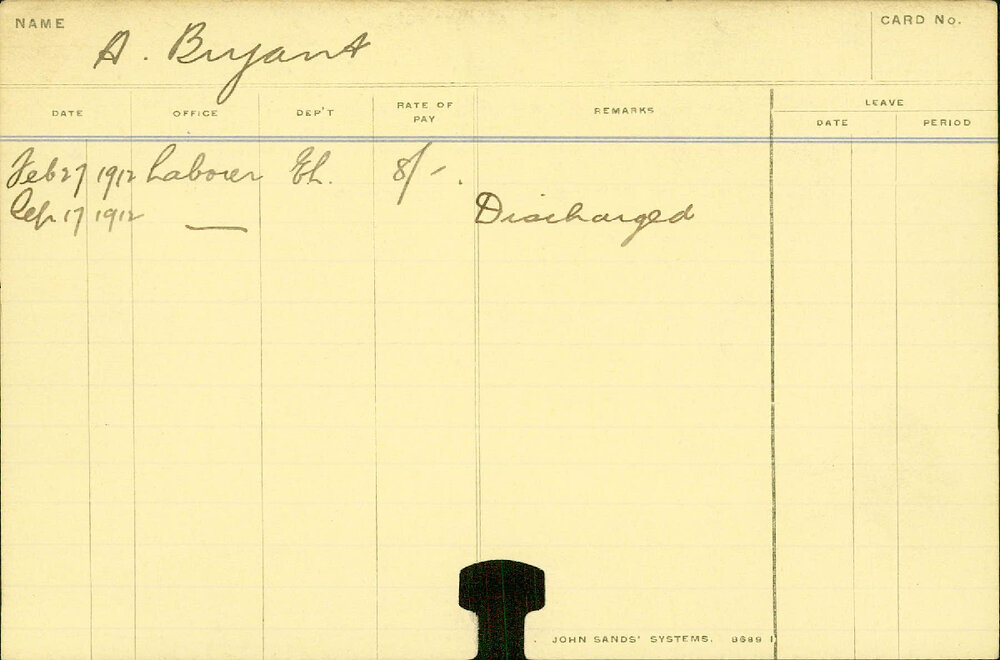 NAME
A. Bryant
CARD No.
DATE OFFICE DEP'T RATE OF PAY REMARKS LEAVE
DATE PERIOD
Feb 27 1912 Labourer El. 8/-.
Sep 17 1912 — Discharged
JOHN SANDS' SYSTEMS. 8689